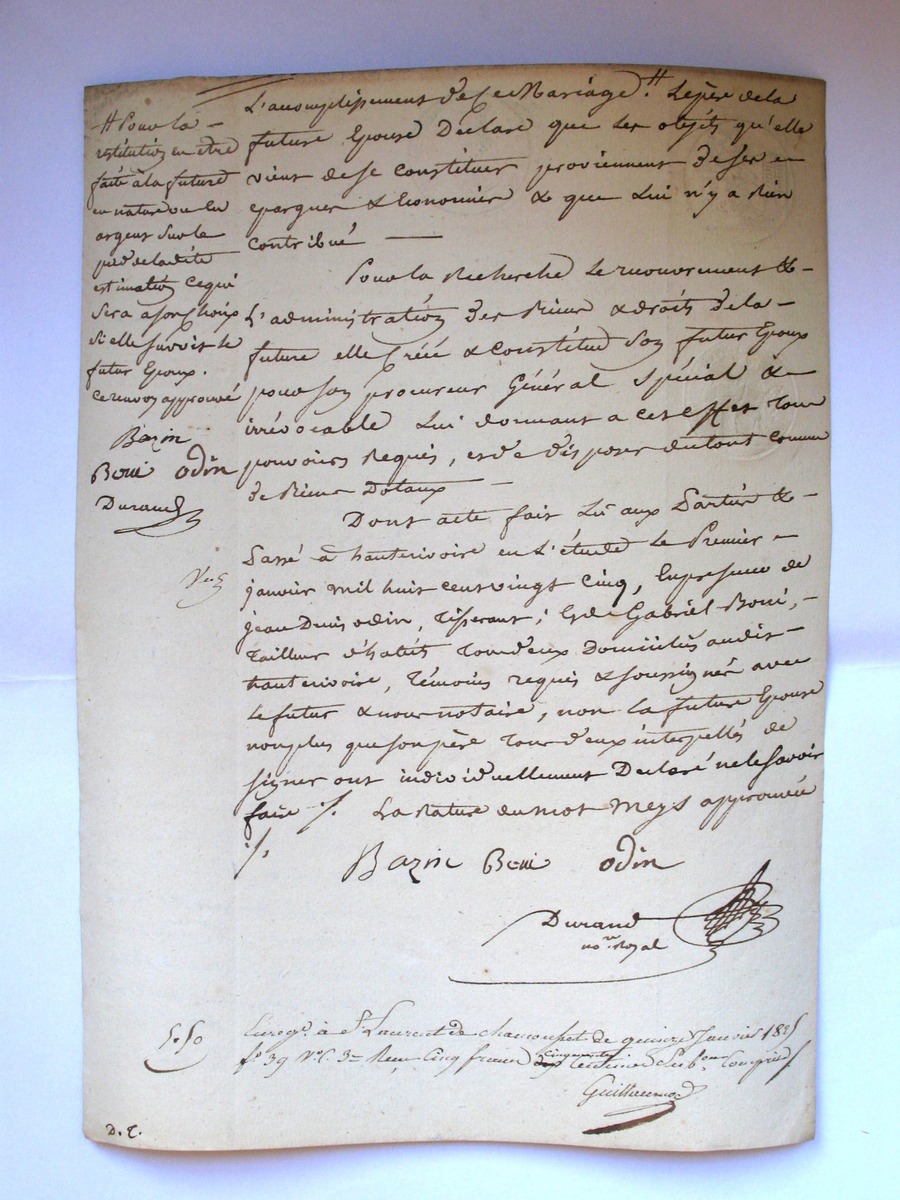 # Pour la
restitution en etre
faite à la future
en nature ou En
argent Sur le
pied de la dité
estimation Ce qui
Sera a son Choix
Si elle Survit le
futur Epoux.
Ce renvoy approuvé
Bazin
Boni odin
Durand
L'accomplissement de Ce Mariage # Le père de la
future Epouse Declare que Les objets qu'elle
vient de se constituer proviennent de Ses
epargnes & Economies & que Lui n'y a Rien
Contribué
Pour la Recherche Le recouvrement &
L'administration des Biens & droits de la
future elle Créé & Constitue Son futur Epoux
pour Son procureur Général Spécial &
irrévocable Lui donnant a cet effet Tous
pouvoirs Requis, et de disposer du tout comme
de Biens Dotaux
Dont acte fait Lu aux Parties &
Passé à hauterivoire en L'étude Le Premier
janvier mil huit cent vingt Cinq, En presence de
jean Denis odin, Tisserant, Et de Gabriel Boni,
Tailleur d'habits Tous deux Domiciliés audit
hauterivoire, Témoins requis & soussignés avec
Le futur & nous notaire, non La future Epouse
non plus que son père Tous deux interpellés de
signer ont individuellement Declaré ne le Savoir
faire /. La Rature du mot Meys approuvée
/.
Bazin Boni odin
Durand
no.re Royal
5.50
Enreg.é à S.t Laurent de chamousset le quinze Janvier 1825
f.o 39 V.o C. 3 Reçu Cinq francs cinquante centimes Sub.on Compris
Guillermod
D. E.